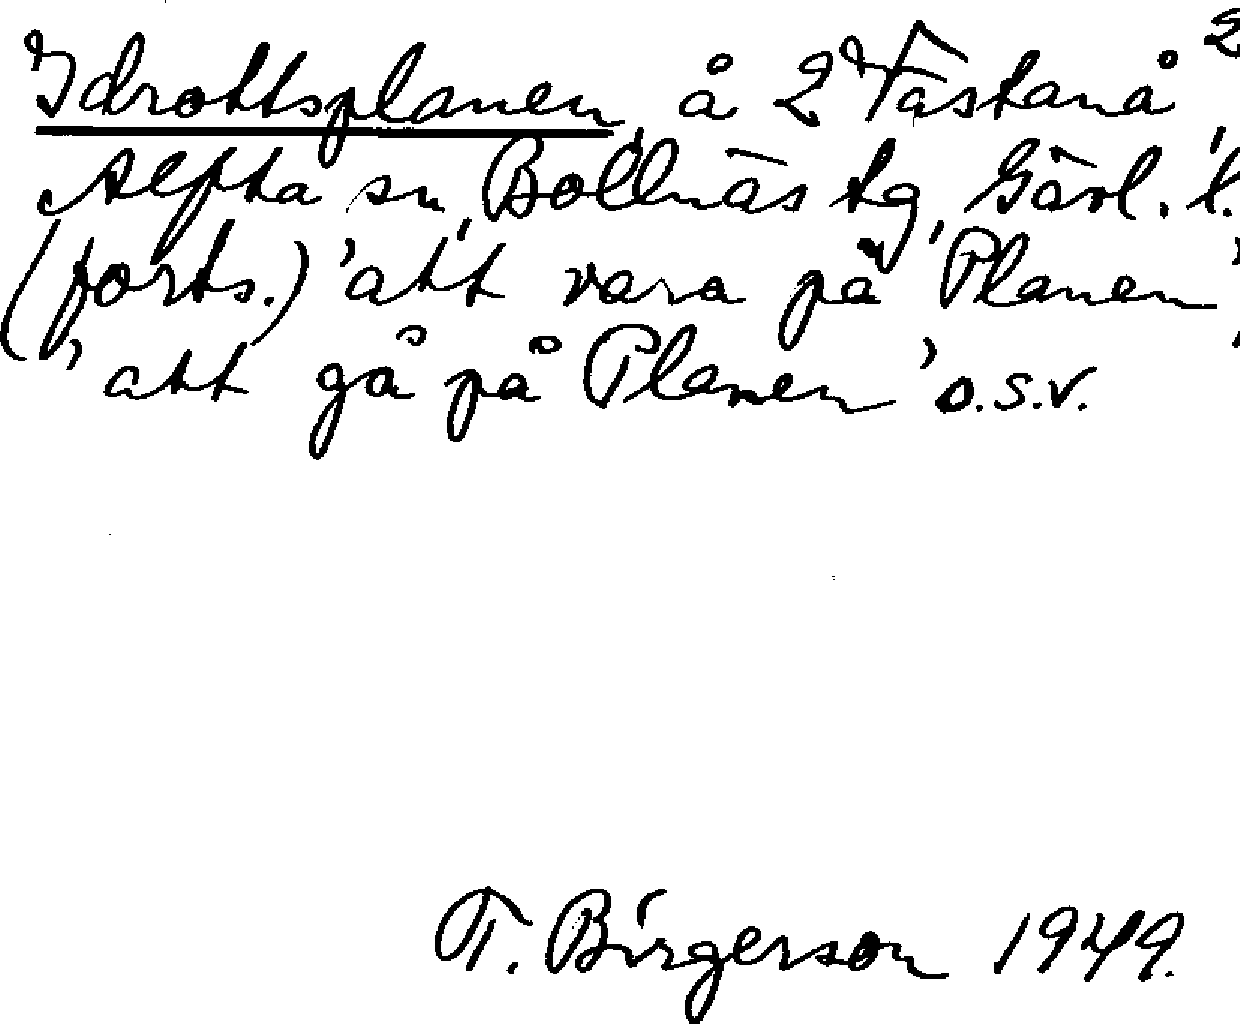 Idrottsplanen, å 2 Västanå 2
Alfta sn, Bollnäs tg, Gävl. l.
(forts.) 'att vara på Planen',
'att gå på Planen' o.s.v.
T. Birgerson 1949.